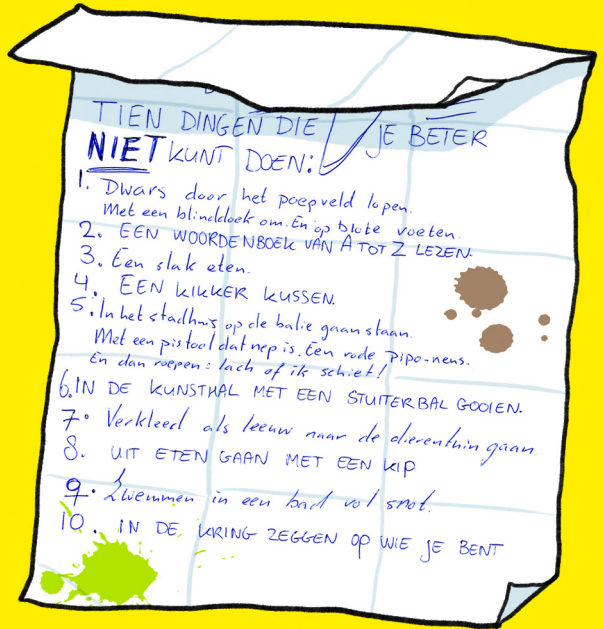 TIEN DINGEN DIE JE BETER
NIET KUNT DOEN:
1. Dwars door het poepveld lopen.
Met een blinddoek om. En op blote voeten.
2. EEN WOORDENBOEK VAN A TOT Z LEZEN.
3. Een slak eten.
4. EEN KIKKER KUSSEN.
5. In het stadhuis op de balie gaan staan.
Met een pistool dat nep is. Een rode pipo-neus.
En dan roepen: lach of ik schiet!
6. IN DE KUNSTHAL MET EEN STUITERBAL GOOIEN.
7. Verkleed als leeuw naar de dierentuin gaan.
8. UIT ETEN GAAN MET EEN KIP
9. Zwemmen in een bad vol snot.
10. IN DE KRING ZEGGEN OP WIE JE BENT